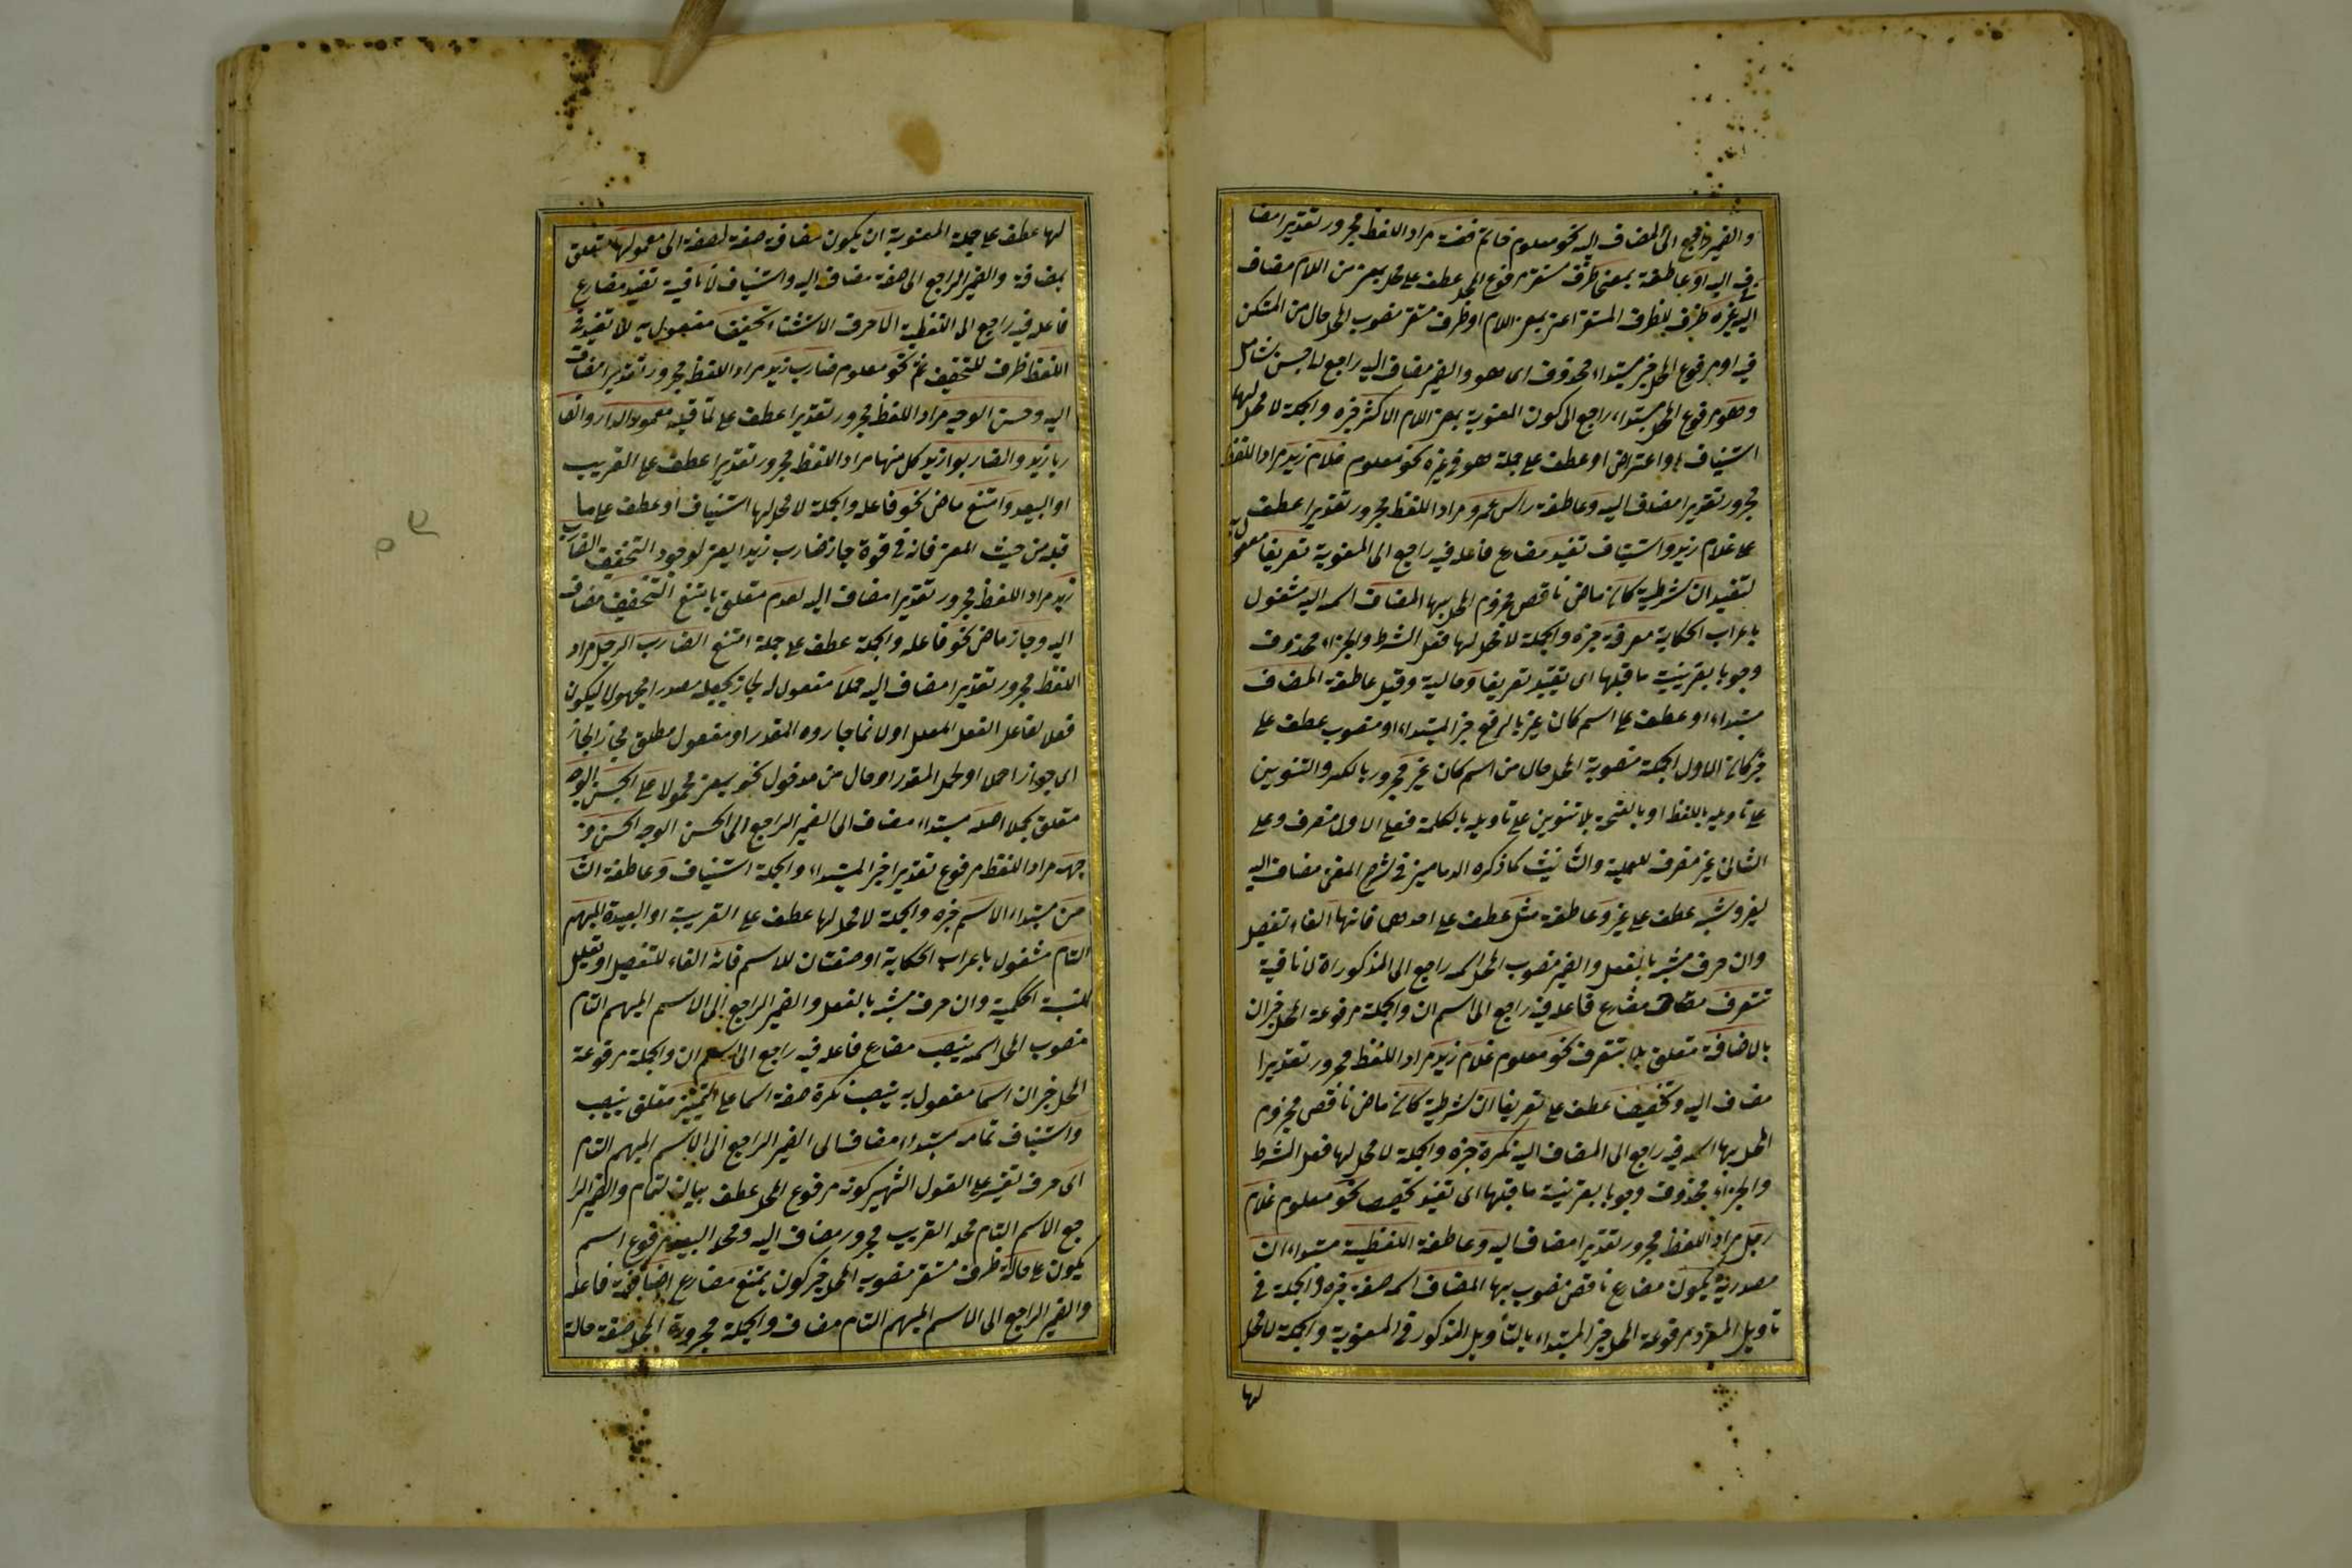 والضمير راجع الى المضاف اليه نحو معلوم خاتم فضة مراد اللفظ مجرور تقديرا مضا
ف اليه او عاطفة بمعنى ظرف مستقر مرفوع المحل عطف على محل بمعنى من اللام مضاف
اليه غيره ظرف للظرف المستقر اعنى بمعنى اللام او ظرف مستقر منصوب المحل حال من المستكن
فيه او مرفوع المحل خبر مبتداء محذوف اى هو والضمير مضاف اليه راجع لجنس شامل
وهو مرفوع المحل مبتداء راجع الى كون المعنوية بمعنى اللام الاكثر خبره والجملة لا محل لها
استيناف او اعتراض او عطف على جملة هو فى غيره نحو معلوم غلام زيد مراد اللفظ
مجرور تقديرا مضاف اليه وعاطفة راس عمرو مراد اللفظ مجرور تقديرا عطف
على غلام زيد واستيناف تفيد مضارع فاعله فيه راجع الى المعنوية تعريفا مفعول به
لتفيد ان شرطية كان ماض ناقص مجزوم المحل بها المضاف اسمه اليه مشغول
باعراب الحكاية معرفة خبره والجملة لا محل لها فعل الشرط والجزاء محذوف
وجوبا بقرينة ما قبلها اى تفيد تعريفا وحالية وقيل عاطفة المضاف
مبتداء او عطف على اسم كان غير بالرفع خبر المبتداء او منصوب عطف على
خبر كان الاول الجملة منصوبة المحل حال من اسم كان غير مجرور بالكسر والتنوين
على تاويله باللفظ او بالفتحة بلا تنوين على تاويله بالكلمة فعلى الاول منصرف وعلى
الثانى غير منصرف للعلمية والتأنيث كما ذكره الدمامينى فى شرح المغنى مضاف اليه
لغير وشبه عطف على غير وعاطفة مثل عطف على احدهما فانها الفاء تفصيل
وان حرف مشبه بالفعل والضمير منصوب المحل اسمه راجع الى المذكورات لا نافية
تتعرف مضارع فاعله فيه راجع الى اسم ان والجملة مرفوعة المحل خبر ان
بالاضافة متعلق بلا تتعرف نحو معلوم غلام زيد مراد اللفظ مجرور تقديرا
مضاف اليه وتخصيصا عطف على تعريفا ان شرطية كان ماض ناقص مجزوم
المحل بها اسمه فيه راجع الى المضاف اليه نكرة خبره والجملة لا محل لها فعل الشرط
والجزاء محذوف وجوبا بقرينة ما قبلها اى تفيد تخصيصا نحو معلوم غلام
رجل مراد اللفظ مجرور تقديرا مضاف اليه وعاطفة اللفظية مبتداء ان
مصدرية يكون مضارع ناقص منصوب بها المضاف اسمه صفة خبره والجملة فى
تاويل المفرد مرفوعة المحل خبر المبتداء بالتأويل المذكور فى المعنوية والجملة لا محل
لها
لها عطف على جملة المعنوية ان يكون مضافة صفة لصفة الى معمولها متعلق
بمضافة والضمير الراجع الى صفة مضاف اليه واستيناف لا نافية تفيد مضارع
فاعله فيه راجع الى اللفظية الا حرف الاستثناء تخفيفا مفعول به لا تفيد فى
اللفظ ظرف للتخفيف نحو معلوم ضارب زيد مراد اللفظ مجرور تقديرا مضاف
اليه وحسن الوجه مراد اللفظ مجرور تقديرا عطف على ما قبله معمور الدار والضا
ربا زيد والضاربوا زيد كل منها مراد اللفظ مجرور تقديرا عطف على القريب
او البعيد وامتنع ماض نحو فاعله والجملة لا محل لها استيناف او عطف على ما
قبله من حيث المعنى فانه فى قوة جاز ضارب زيد يعنى لوجود التخفيف الضارب
زيد مراد اللفظ مجرور تقديرا مضاف اليه لعدم متعلق بامتنع التخفيف مضاف
اليه وجاز ماض نحو فاعله والجملة عطف على جملة امتنع الضارب الرجل مراد
اللفظ مجرور تقديرا مضاف اليه حملا مفعول له لجاز بجعله مصدرا مجهولا ليكون
فعلا لفاعل الفعل المعلل اولا نما جاروه المقدر او مفعول مطلق مجازا لجاز
اى جواز احملا او لحمل المقدر او حال من مدخول نحو يعنى محمولا على الحسن الوجه
متعلق بحملا اصله مبتداء مضاف الى الضمير الراجع الى الحسن الوجه الحسن و
جهه مراد اللفظ مرفوع تقديرا خبر المبتداء والجملة استيناف وعاطفة الثا
من مبتداء الاسم خبره والجملة لا محل لها عطف على القريبة او البعيدة المبهم
التام مشغول باعراب الحكاية او صفتان للاسم فانه الفاء للتفصيل او تعليل
للنسبة الحكمية وان حرف مشبه بالفعل والضمير الراجع الى الاسم المبهم التام
منصوب المحل اسمه ينصب مضارع فاعله فيه راجع الى اسم ان والجملة مرفوعة
المحل خبر ان اسما مفعول به ينصب نكرة صفة اسما على التمييز متعلق ينصب
واستيناف تمامه مبتداء مضاف الى الضمير الراجع الى الاسم المبهم التام
اى حرف تفسير على القول الشهير كونه مرفوع المحل عطف بيان لتمام والضمير الرا
جع الاسم التام محله القريب مجرور مضاف اليه ومحله البعيد مرفوع اسم
يكون على حالة ظرف مستقر منصوب المحل خبر كون يمتنع مضارع اضافته فاعله
والضمير الراجع الى الاسم المبهم التام مضاف والجملة مجرورة المحل صفة حالة